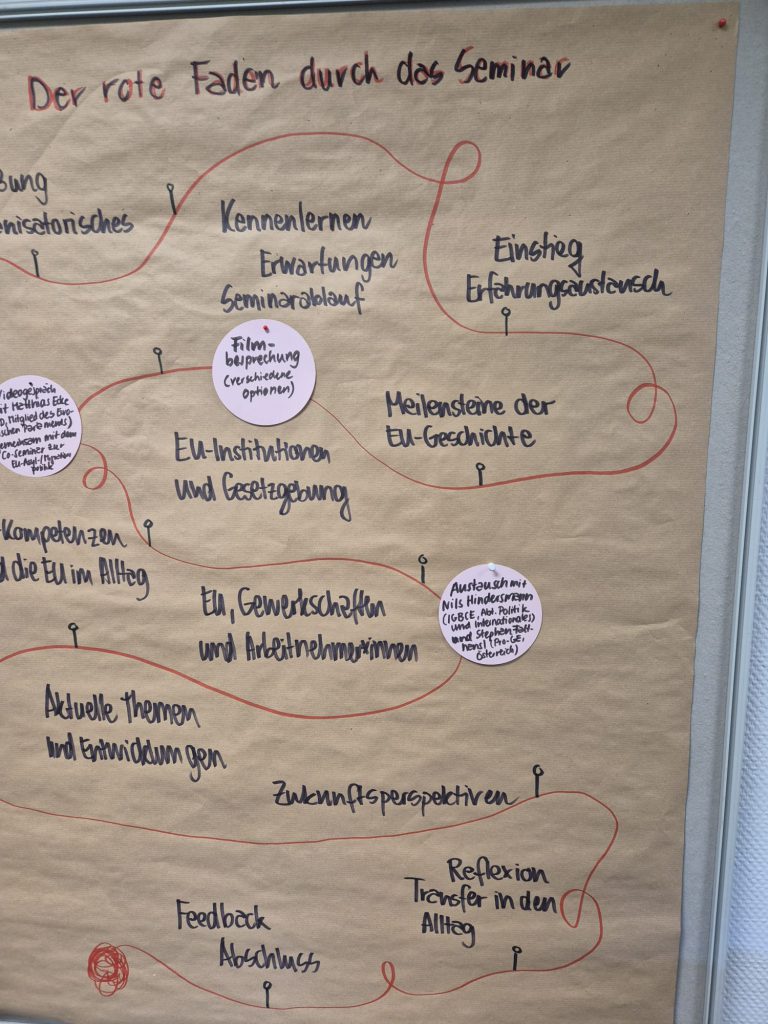 Der rote Faden durch das Seminar
ßung
nisatorisches
Kennenlernen
Erwartungen
Seminarablauf
Einstieg
Erfahrungsaustausch
Meilensteine der
EU-Geschichte
Film-
besprechung
(verschiedene
Optionen)
EU-Institutionen
und Gesetzgebung
Videogespräch
it Matthias Ecke
D, Mitglied des Euro-
schen Parlaments)
emeinsam mit dem
Co-Seminar zur
EU-Asyl-/Migrations
politik
-Kompetenzen
d die EU im Alltag
EU, Gewerkschaften
und Arbeitnehmer*innen
Austausch mit
Nils Hindersmann
(IGBCE, Abt. Politik
und Internationales)
und Stephan
(Pro-GE,
Österreich)
Aktuelle Themen
und Entwicklungen
Zukunftsperspektiven
Reflexion
Transfer in den
Alltag
Feedback
Abschluss